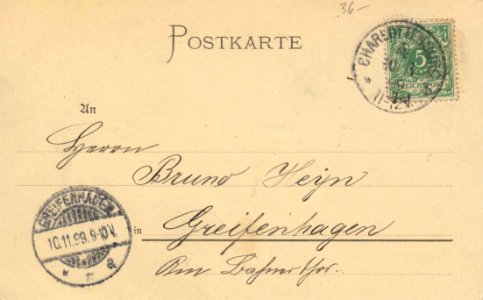 36-
POSTKARTE
CHARLOTTENBURG
5
REICHSPOST
11-12V.
An
Herrn
Bruno Heyn
in Greifenhagen
Am Bahner thor.
GREIFENHAGEN
10.11.99.9-10V.
* π a